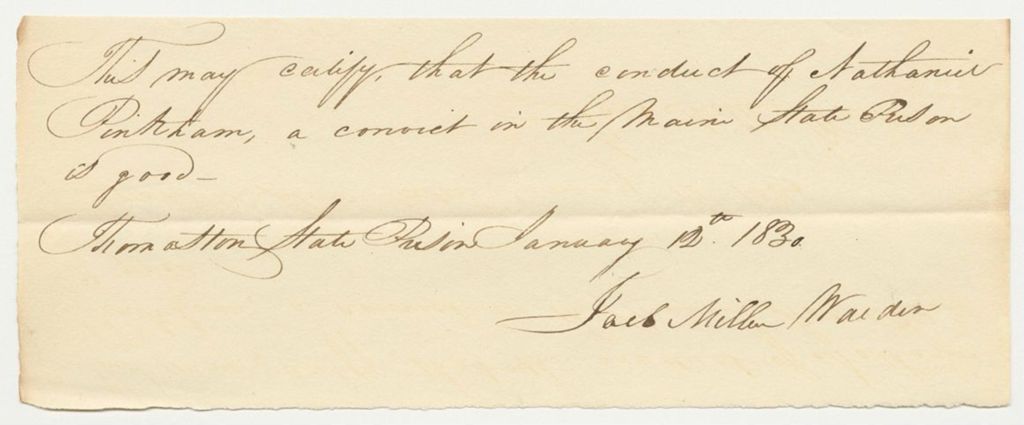 This may certify, that the conduct of Nathaniel
Pinkham, a convict in the Maine State Prison
is good—
Thomaston State Prison January 12th. 1830.
Joel Miller Warden